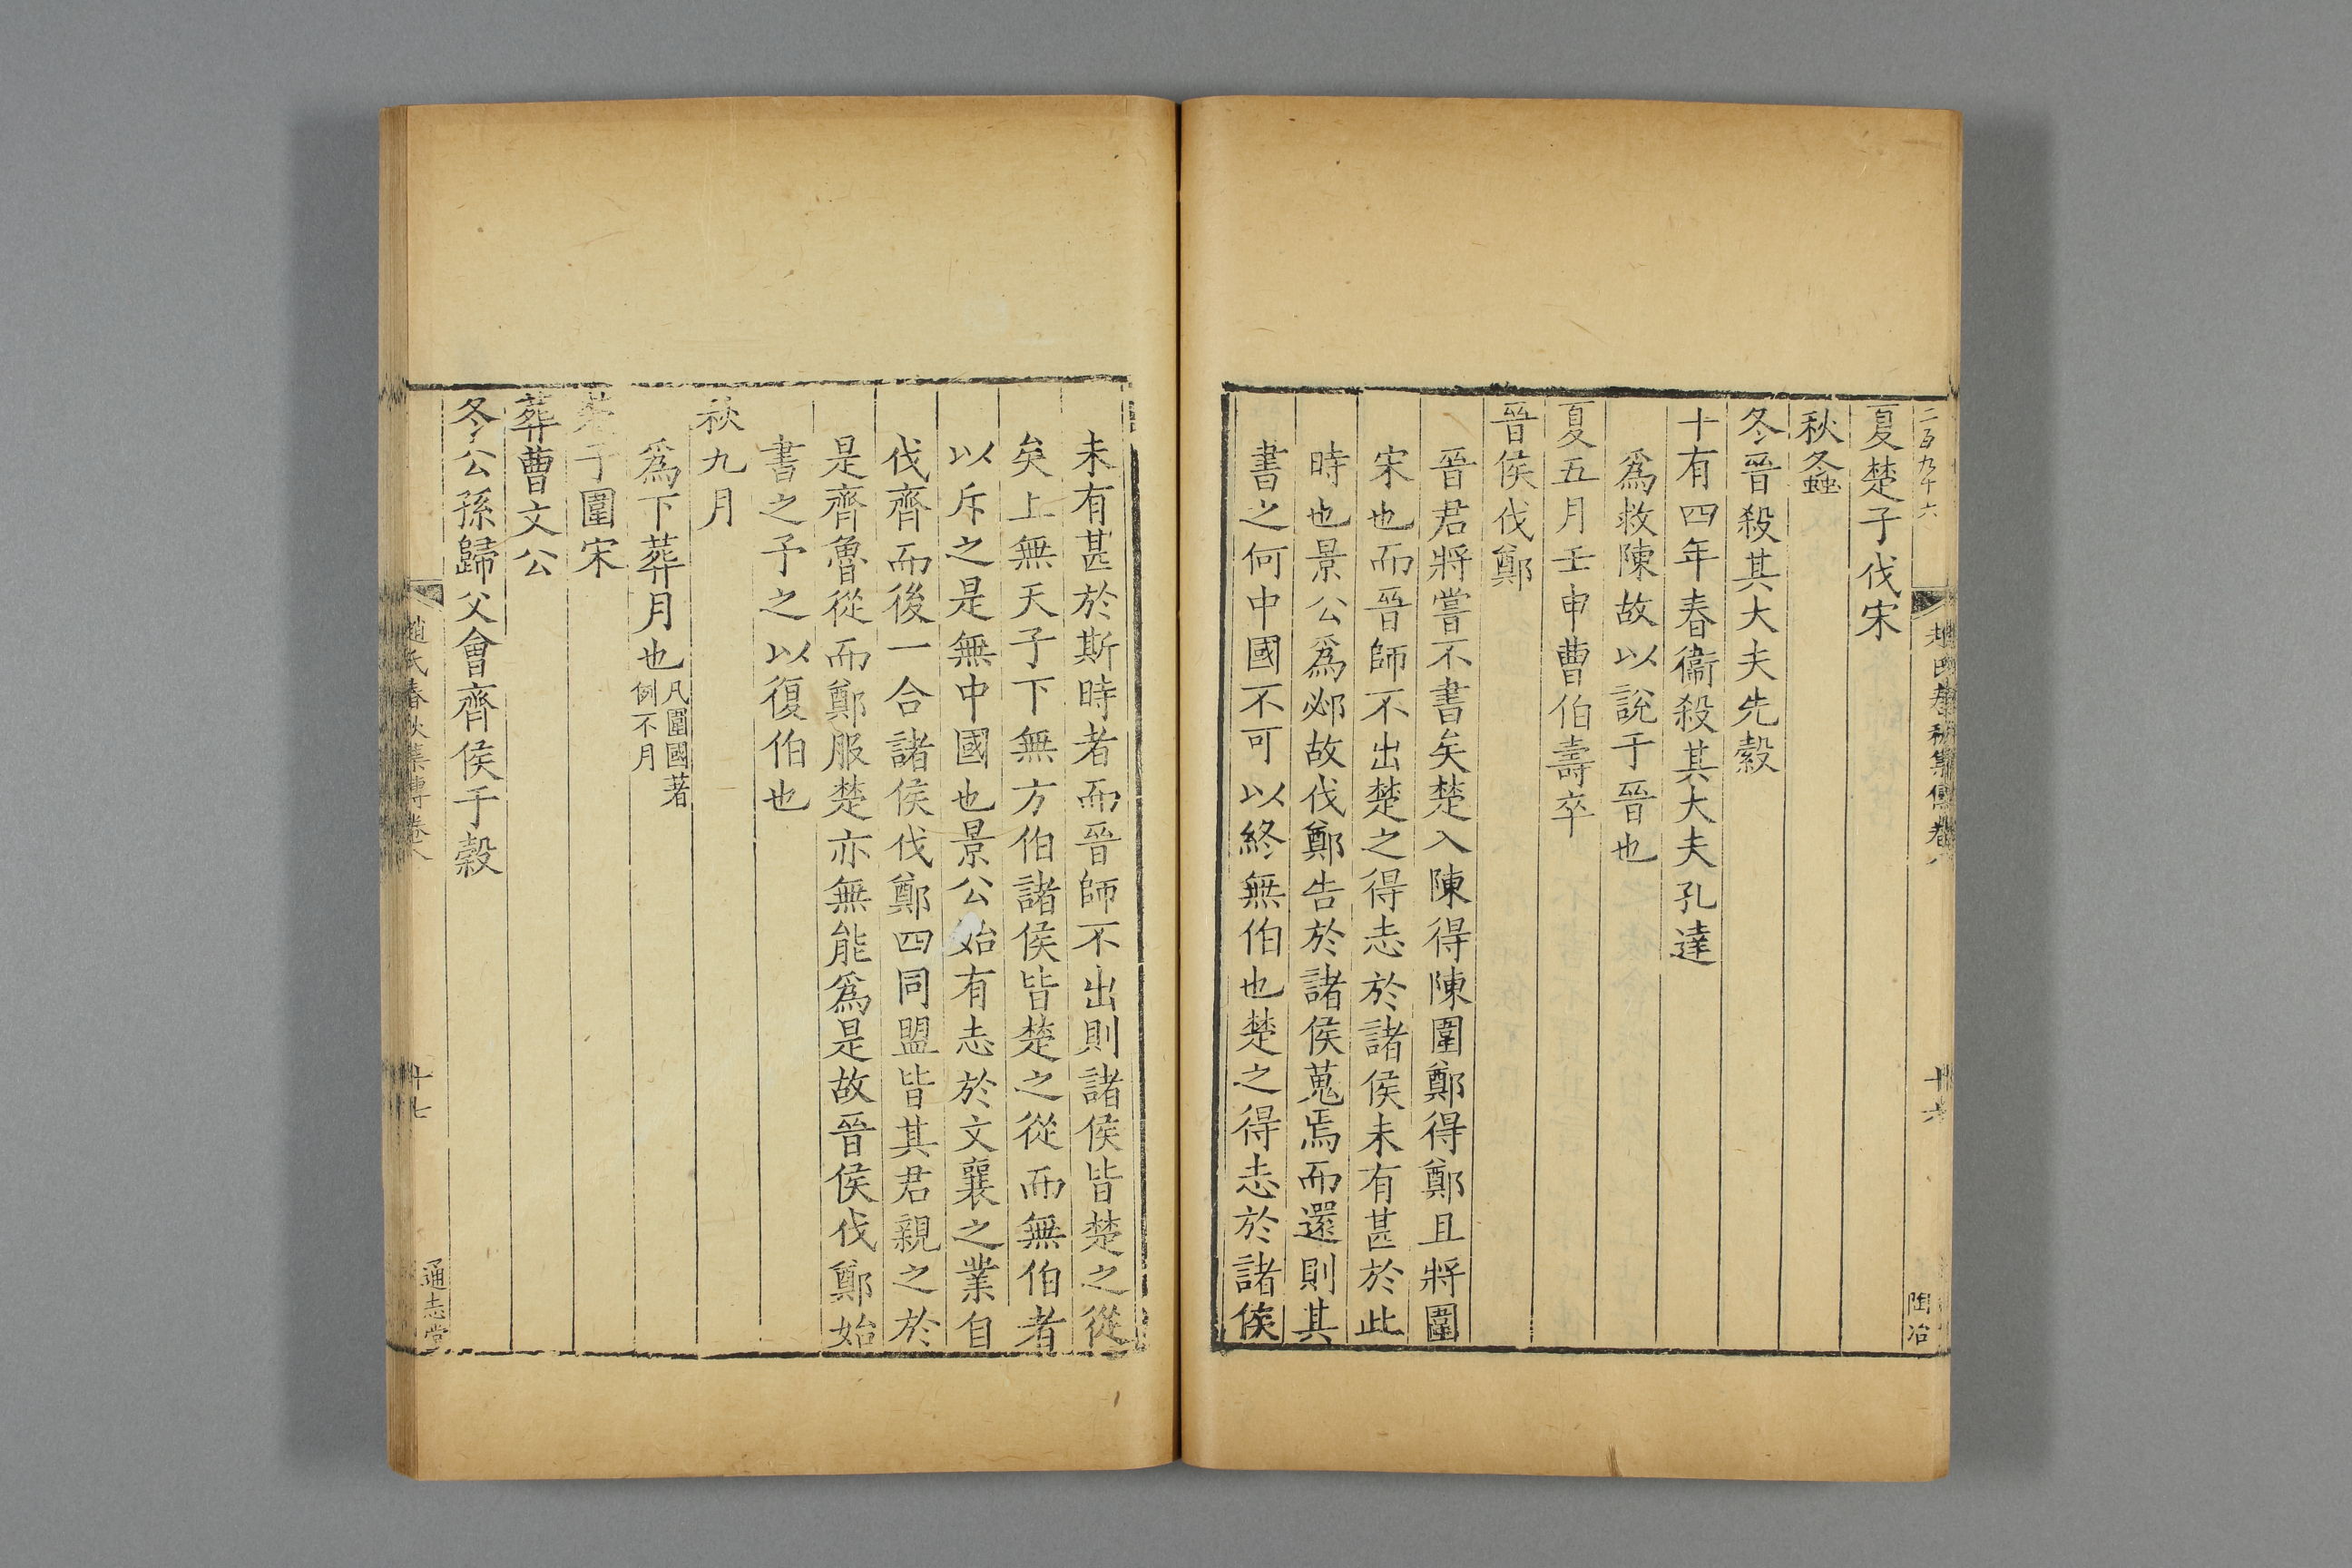 二百九十六
趙氏春秋集傳卷八
十六
陶冶
夏楚子伐宋
秋螽
冬晉殺其大夫先縠
十有四年春衞殺其大夫孔達
爲救陳故以說于晉也
夏五月壬申曹伯壽卒
晉侯伐鄭
晉君將嘗不書矣楚入陳得陳圍鄭得鄭且將圍
宋也而晉師不出楚之得志於諸侯未有甚於此
時也景公爲邲故伐鄭告於諸侯蒐焉而還則其
書之何中國不可以終無伯也楚之得志於諸侯
未有甚於斯時者而晉師不出則諸侯皆楚之從
矣上無天子下無方伯諸侯皆楚之從而無伯者
以斥之是無中國也景公始有志於文襄之業自
伐齊而後一合諸侯伐鄭四同盟皆其君親之於
是齊魯從而鄭服楚亦無能爲是故晉侯伐鄭始
書之予之以復伯也
秋九月
爲下葬月也凡圍國著例不月
楚子圍宋
葬曹文公
冬公孫歸父會齊侯于穀
趙氏春秋集傳卷八
十七
通志堂